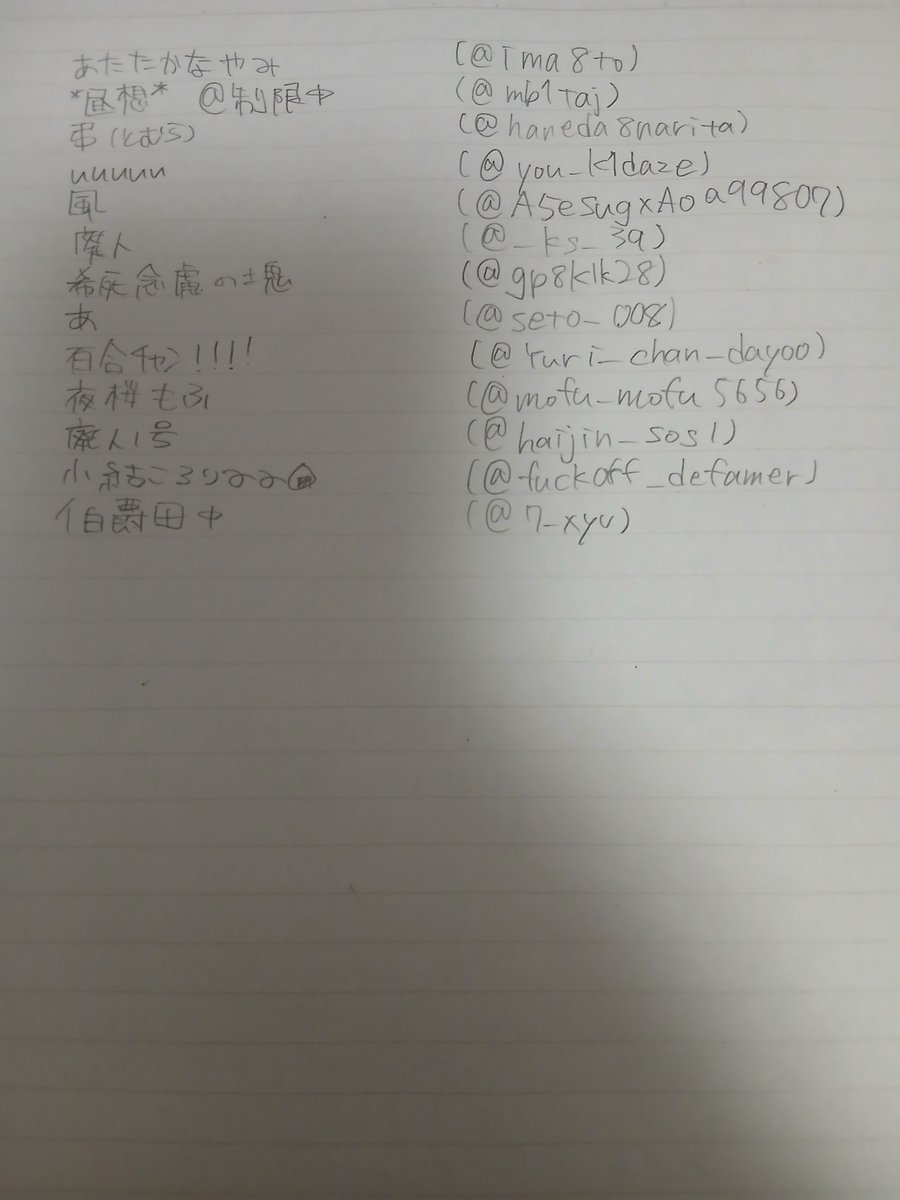 あたたかなやみ (@ima8to)
*昼想* @制限中 (@mb1taj)
弔(とむら) (@haneda8narita)
uuuuu (@you_k1daze)
風 (@A5esugxAoa99807)
廃人 (@_ks_39)
希死念慮の塊 (@gp8klk28)
あ (@seto_008)
百合チャン!!!! (@Yuri_chan_dayoo)
夜桜もふ (@mofu_mofu5656)
廃人1号 (@haijin_sos1)
小結ころりみみ (@fuckoff_defamer)
伯爵田中 (@7_xyv)